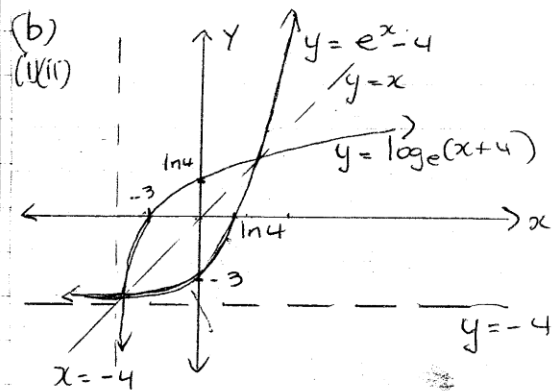 (b)
(i)(ii)
Y
y = eˣ - 4
y = x
y = logₑ(x+4)
ln4
-3
x
ln4
-3
y = -4
x = -4